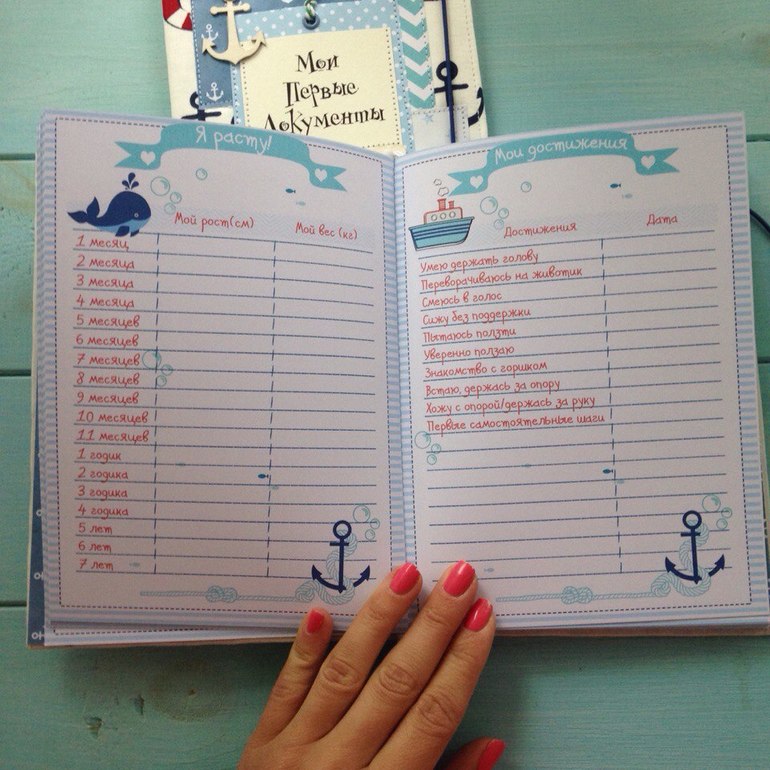 Мои
Первые
Документы
Я расту!
Мой рост(см) Мой вес (кг)
1 месяц
2 месяца
3 месяца
4 месяца
5 месяцев
6 месяцев
7 месяцев
8 месяцев
9 месяцев
10 месяцев
11 месяцев
1 годик
2 годика
3 годика
4 годика
5 лет
6 лет
7 лет
Мои достижения
Достижения Дата
Умею держать голову
Переворачиваюсь на животик
Смеюсь в голос
Сижу без поддержки
Пытаюсь ползти
Уверенно ползаю
Знакомство с горшком
Встаю, держась за опору
Хожу с опорой/держась за руку
Первые самостоятельные шаги